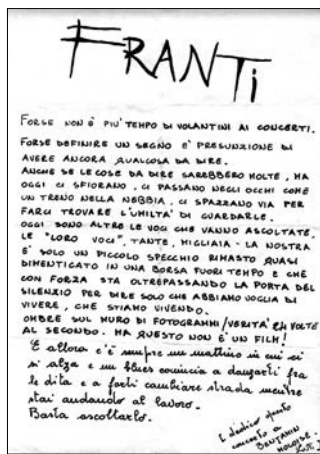 FRANTI
FORSE NON È PIU' TEMPO DI VOLANTINI AI CONCERTI.
FORSE DEFINIRE UN SEGNO E' PRESUNZIONE DI
AVERE ANCORA QUALCOSA DA DIRE.
ANCHE SE LE COSE DA DIRE SAREBBERO MOLTE, MA
OGGI CI SFIORANO, CI PASSANO NEGLI OCCHI COME
UN TRENO NELLA NEBBIA, CI SPAZZANO VIA PER
FARCI TROVARE L'UMILTÀ DI GUARDARLE.
OGGI SONO ALTRE LE VOCI CHE VANNO ASCOLTATE,
LE "LORO VOCI", TANTE, MIGLIAIA - LA NOSTRA
E' SOLO UN PICCOLO SPECCHIO RIMASTO QUASI
DIMENTICATO IN UNA BORSA FUORI TEMPO E CHE
CON FORZA STA OLTREPASSANDO LA PORTA DEL
SILENZIO PER DIRE SOLO CHE ABBIAMO VOGLIA DI
VIVERE, CHE STIAMO VIVENDO.
OMBRE SUL MURO DI FOTOGRAMMI/VERITÀ 24 VOLTE
AL SECONDO. MA QUESTO NON E' UN FILM!
E allora c'è sempre un mattino in cui ci
si alza e un blues comincia a danzarti fra
le dita e a farti cambiare strada mentre
stai andando al lavoro.
Basta ascoltarlo.
E dedico questo
concerto a
BENJAMIN
MOLOISE.